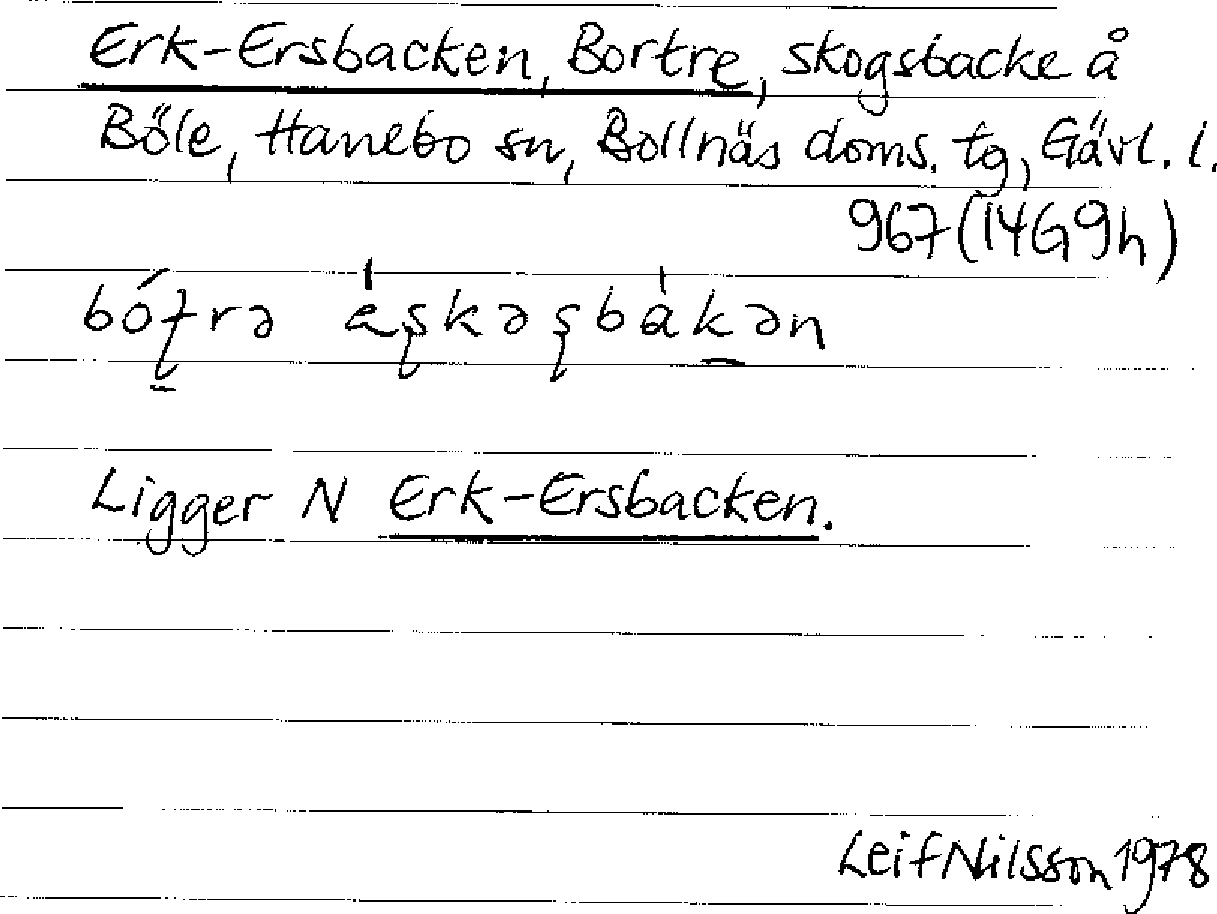 Erk-Ersbacken, Bortre, skogsbacke å
Böle, Hanebo sn, Bollnäs doms. tg, Gävl. l.
967 (14G9h)
bóʈrə a̍ʂkəʂbàkən
Ligger N Erk-Ersbacken.
Leif Nilsson 1978